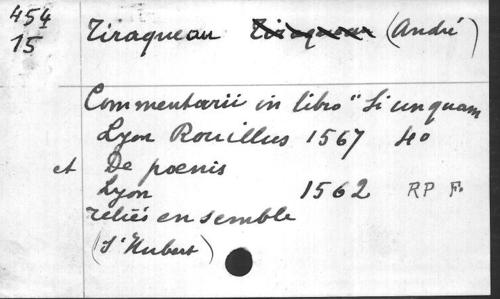 454
15
Tiraqueau Tiraqueau (André)
Commentarii in libro "Si unquam
Lyon Rouillus 1567 4o
et De poenis
Lyon 1562 RP F.
reliés ensemble
(St Hubert)